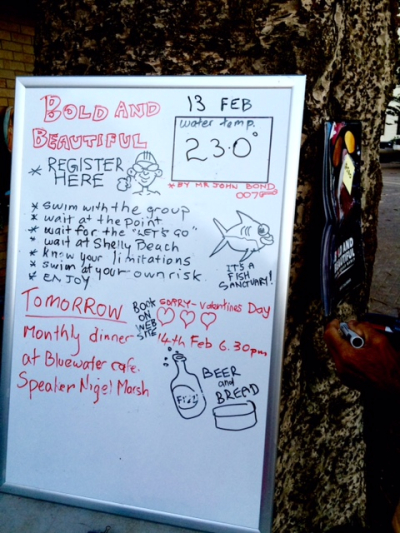 BOLD AND
BEAUTIFUL
13 FEB
water temp.
23.0°
* REGISTER
HERE
* BY MR JOHN BOND
007
* swim with the group
* wait at the point
* wait for the "LET'S GO"
* wait at Shelly Beach
* know your limitations
* swim at your own risk.
* ENJOY
IT'S A
FISH
SANCTUARY!
TOMORROW
BOOK
ON
WEB
SITE
SORRY - Valentines Day
Monthly dinner
14th Feb 6.30pm
at Bluewater cafe.
Speater Nigel Marsh
BEER
and
BREAD